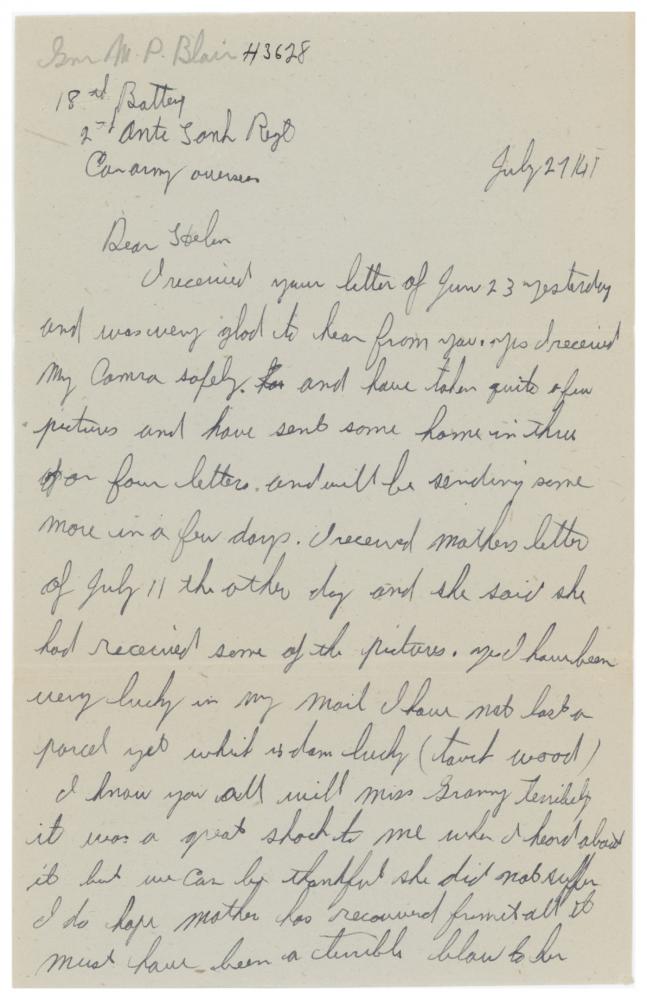 Gnr M. P. Blair H3628
18th Battery
2nd Anti Tank Regt
Can army overseas
July 27/41
Dear Helen
I received your letter of Jun 23 yesterday
and was very glad to hear from you. yes I received
my Camra safely. and have taken quite a few
pictures and have sent some home in three
or four letters. and will be sending some
more in a few days. I received mothers letter
of July 11 the other day and she said she
had received some of the pictures. yes I have been
very lucky in my mail I have not lost a
parcel yet which is dam lucky (touch wood)
I know you all will miss Granny terribely
it was a great shock to me when I heard about
it but we can be thankful she did not suffer
I do hope mother has recovered from it all it
must have been a terrible blow to her